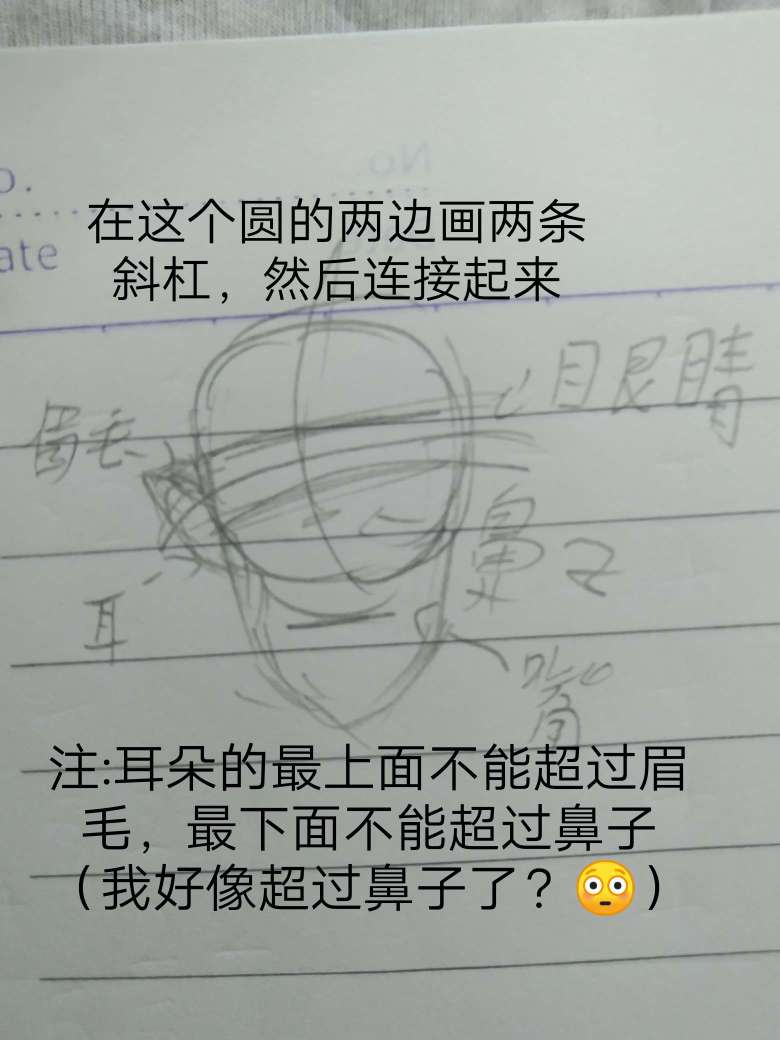 No.
o.
ate
在这个圆的两边画两条
斜杠，然后连接起来
眼睛
眉毛
鼻子
耳
嘴
注:耳朵的最上面不能超过眉
毛，最下面不能超过鼻子
（我好像超过鼻子了？😳）